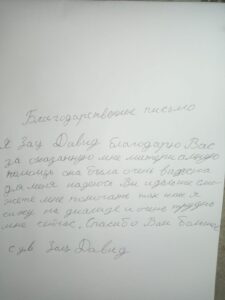 Благодарственное письмо
Я Зац Давид благодарю Вас
за оказанную мне материальную
помощь она была очень
для меня надеюсь Вы и дальше смо-
жете мне помогать так как я
сижу на диализе и очень трудно
мне сейчас. Спасибо Вам большое
с ув. Зац Давид